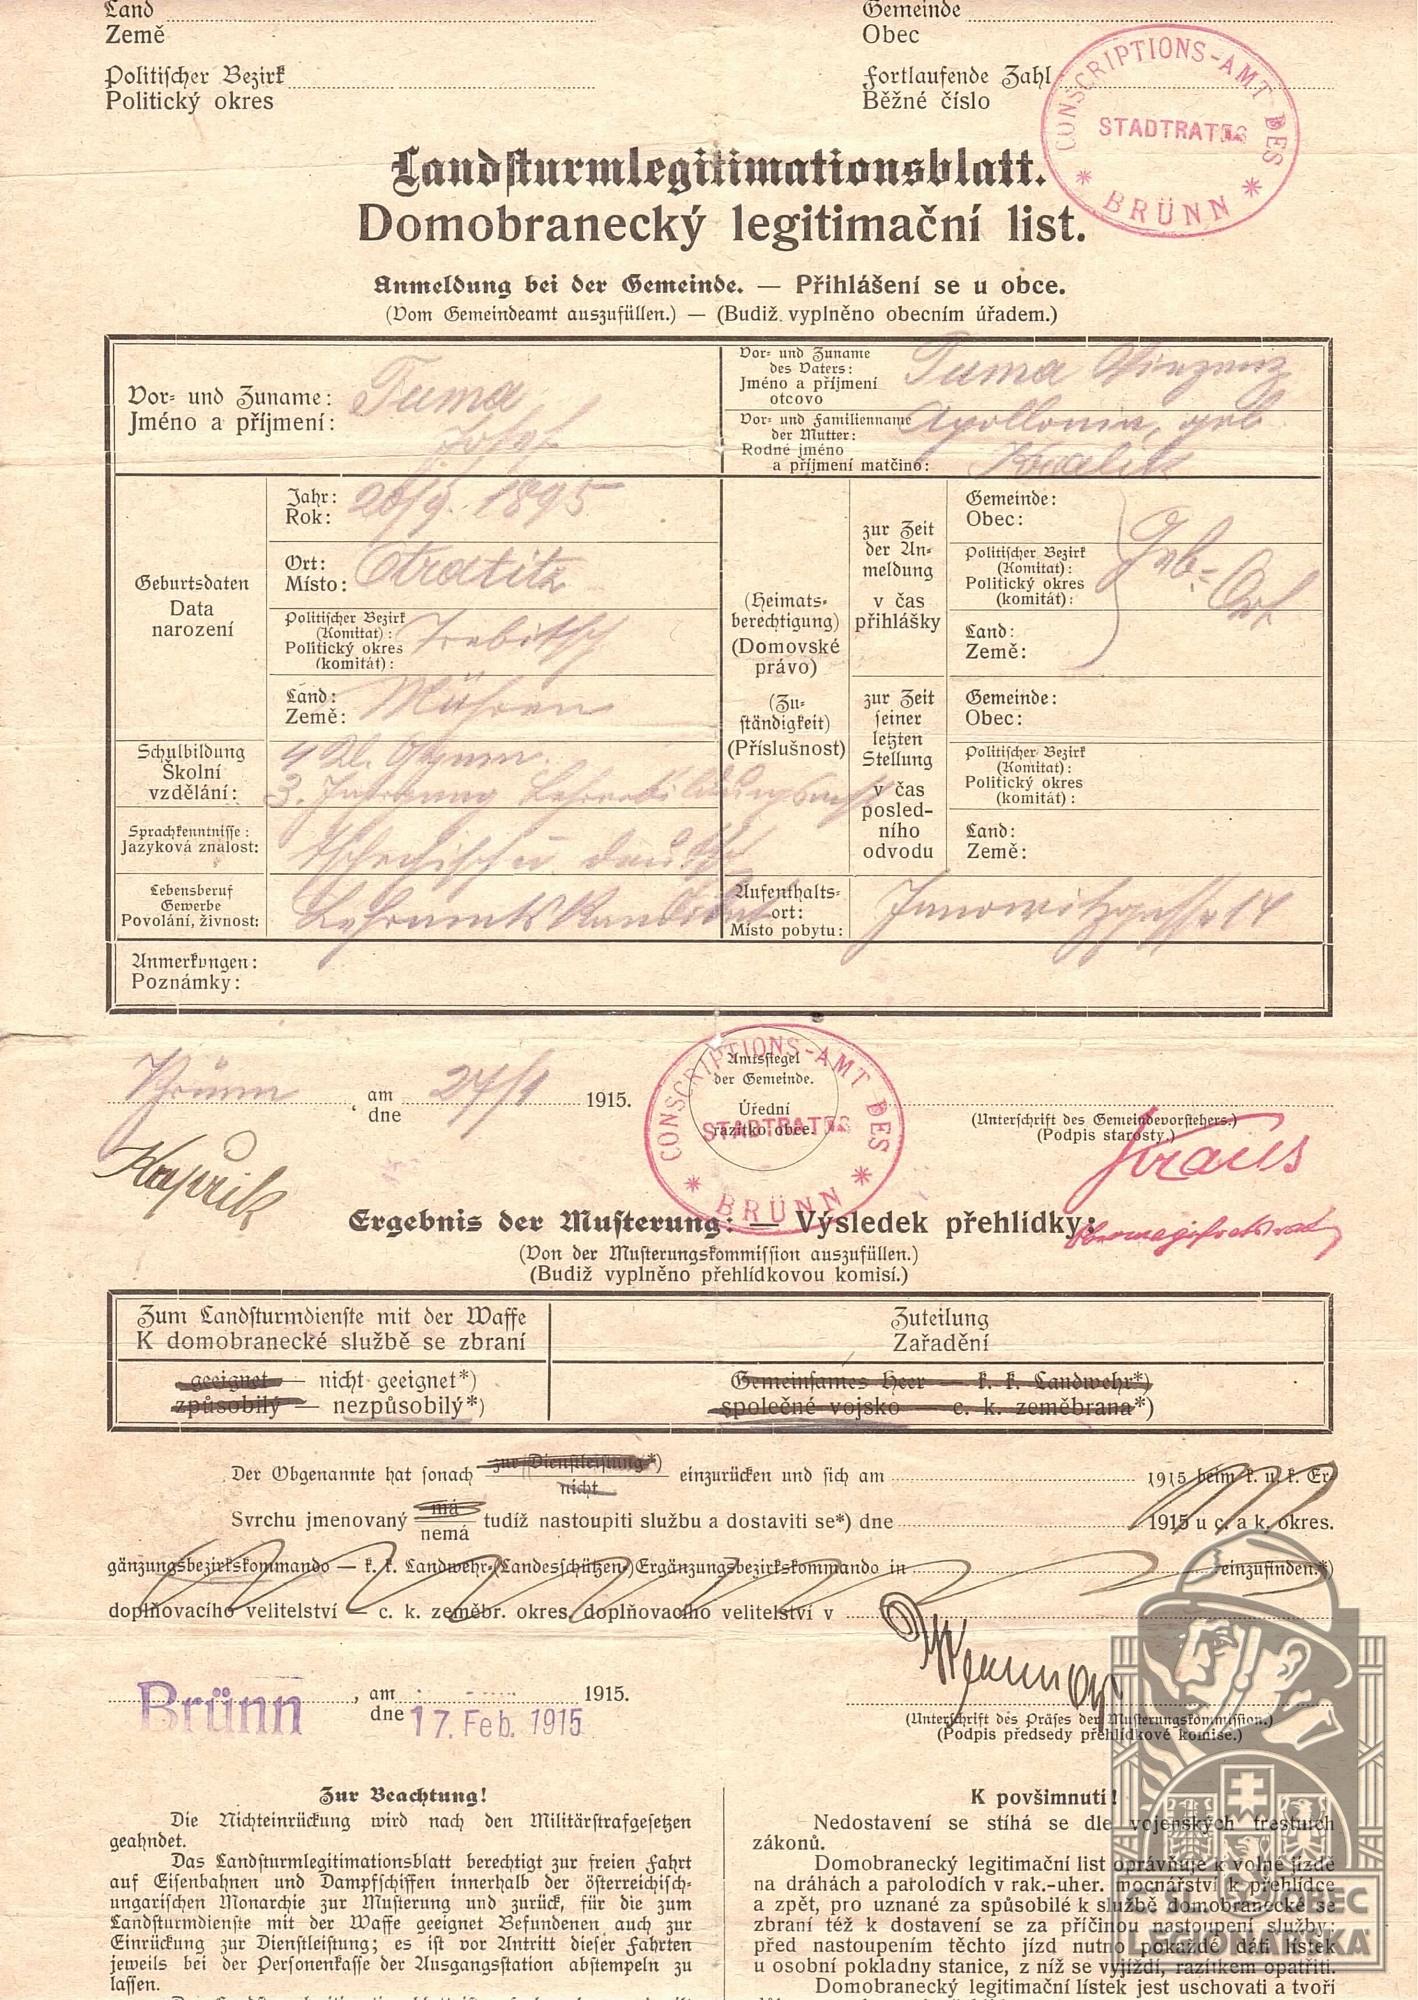 Land
Země
Gemeinde
Obec
Politischer Bezirk
Politický okres
Fortlaufende Zahl
Běžné číslo
CONSCRIPTIONS-AMT DES
STADTRATES
* BRÜNN *
Landsturmlegitimationsblatt.
Domobranecký legitimační list.
Anmeldung bei der Gemeinde. — Přihlášení se u obce.
(Vom Gemeindeamt auszufüllen.) — (Budiž vyplněno obecním úřadem.)
Vor- und Zuname:
Jméno a příjmení:
Tuma
Josef
Vor- und Zuname
des Vaters:
Jméno a příjmení
otcovo
Tuma Vinzenz
Vor- und Familienname
der Mutter:
Rodné jméno
a příjmení matčino:
Apollonia, geb
Kralik
Geburtsdaten
Data
narození
Jahr:
Rok:
20/9. 1895
Ort:
Místo:
Politischer Bezirk
(Komitat):
Politický okres
(komitát):
Trebitsch
Land:
Země:
Mähren
(Heimats-
berechtigung)
(Domovské
právo)
(Zu-
ständigkeit)
(Příslušnost)
zur Zeit
der An-
meldung
v čas
přihlášky
Gemeinde:
Obec:
Politischer Bezirk
(Komitat):
Politický okres
(komitát):
Land:
Země:
Geb=
Ort
zur Zeit
seiner
letzten
Stellung
v čas
posled-
ního
odvodu
Gemeinde:
Obec:
Politischer Bezirk
(Komitat):
Politický okres
(komitát):
Land:
Země:
Schulbildung
Školní
vzdělání:
4 Kl. Gymn.
3. Jahrgang Lehrerbildungsanst
Sprachkenntnisse:
Jazyková znalost:
tschechisch u deutsch
Lebensberuf
Gewerbe
Povolání, živnost:
Lehramts Kandidat
Aufenthalts-
ort:
Místo pobytu:
Janowitzgasse 14
Anmerkungen:
Poznámky:
Brünn am
dne 27/1 1915.
Amtssiegel
der Gemeinde.
Úřední
razítko obce.
CONSCRIPTIONS-AMT DES
STADTRATES
* BRÜNN *
(Unterschrift des Gemeindevorstehers.)
(Podpis starosty.)
Kraus
Ergebnis der Musterung: — Výsledek přehlídky:
(Von der Musterungskommission auszufüllen.)
(Budiž vyplněno přehlídkovou komisí.)
Zum Landsturmdienste mit der Waffe
K domobranecké službě se zbraní
Zuteilung
Zařadění
geeignet — nicht geeignet*)
způsobilý — nezpůsobilý*)
Gemeinsames Heer — k. k. Landwehr*)
společné vojsko — c. k. zeměbrana*)
Der Obgenannte hat sonach zur Dienstleistung*) nicht einzurücken und sich am 1915 beim k. u. k. Er-
Svrchu jmenovaný má nemá tudíž nastoupiti službu a dostaviti se*) dne 1915 u c. a k. okres.
gänzungsbezirkskommando — k. k. Landwehr-(Landesschützen-)Ergänzungsbezirkskommando in einzufinden.*)
doplňovacího velitelství — c. k. zeměbr. okres. doplňovacího velitelství v
Brünn, am
dne 17. Feb. 1915 1915.
(Unterschrift des Präses der Musterungskommission.)
(Podpis předsedy přehlídkové komise.)
Zur Beachtung!
Die Nichteinrückung wird nach den Militärstrafgesetzen
geahndet.
Das Landsturmlegitimationsblatt berechtigt zur freien Fahrt
auf Eisenbahnen und Dampfschiffen innerhalb der österreichisch-
ungarischen Monarchie zur Musterung und zurück, für die zum
Landsturmdienste mit der Waffe geeignet Befundenen auch zur
Einrückung zur Dienstleistung; es ist vor Antritt dieser Fahrten
jeweils bei der Personenkasse der Ausgangsstation abstempeln zu
lassen.
K povšimnutí!
Nedostavení se stíhá se dle vojenských trestních
zákonů.
Domobranecký legitimační list oprávňuje k volné jízdě
na dráhách a parolodích v rak.-uher. mocnářství k přehlídce
a zpět, pro uznané za způsobilé k službě domobranecké se
zbraní též k dostavení se za příčinou nastoupení služby;
před nastoupením těchto jízd nutno pokaždé dáti lístek
u osobní pokladny stanice, z níž se vyjíždí, razítkem opatřiti.
Domobranecký legitimační lístek jest uschovati a tvoří
Č. SL. OBEC
LEGIONÁŘSKÁ